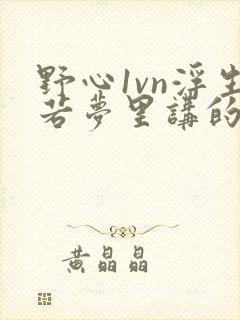 野心1vn浮生
若夢里講的
黄晶晶